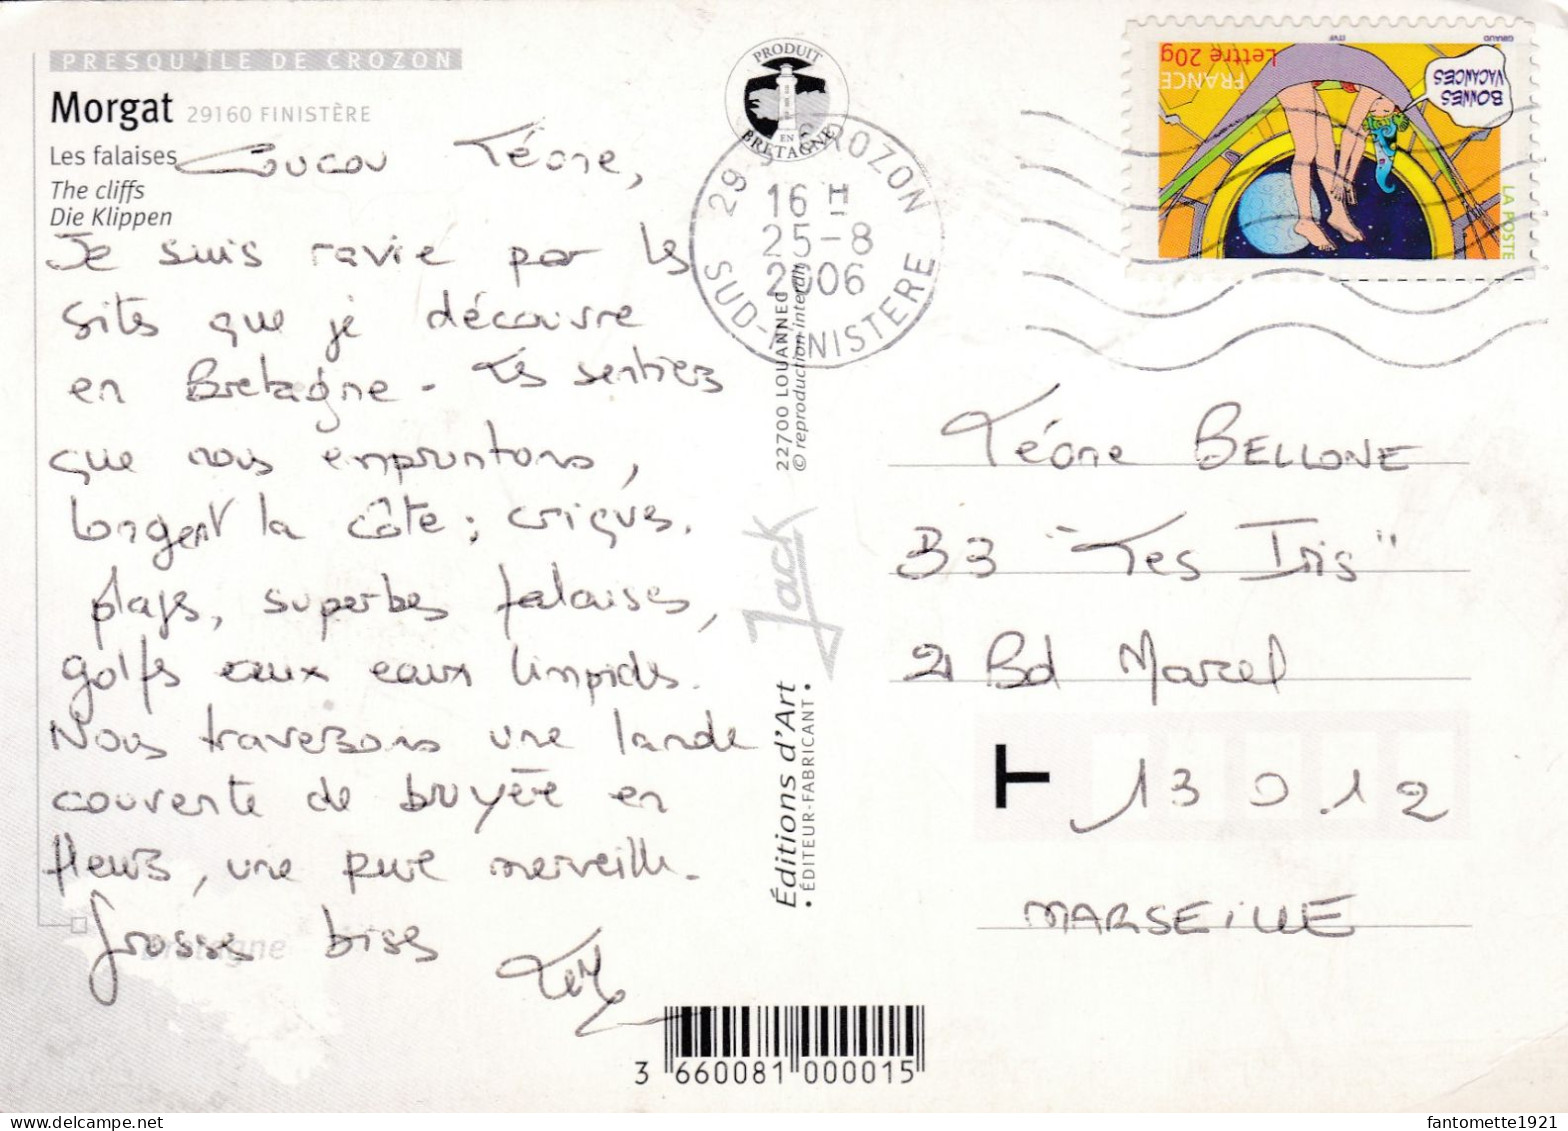 PRESQU'ÎLE DE CROZON
Morgat 29160 FINISTÈRE
Les falaises
The cliffs
Die Klippen
Coucou Léone,
Je suis ravie par les
sites que je découvre
en Bretagne - Les sentiers
que nous empruntons,
longent la côte ; criques,
plages, superbes falaises,
golfes aux eaux limpides.
Nous traversons une lande
couverte de bruyère en
fleurs, une pure merveille.
Grosses bises
Bretagne
PRODUIT
EN
BRETAGNE
29 CROZON
16 H
25-8
2006
SUD-FINISTERE
22700 LOUANNEC
© reproduction interdite
Jack
Éditions d'Art
• ÉDITEUR-FABRICANT •
3 660081 000015
BONNES
VACANCES
FRANCE
Lettre 20g
LA POSTE
ITVF
GIRAUD
Léone BELLONE
B3 "Les Iris"
21 Bd Marcel
T 13012
MARSEILLE
fantomette1921